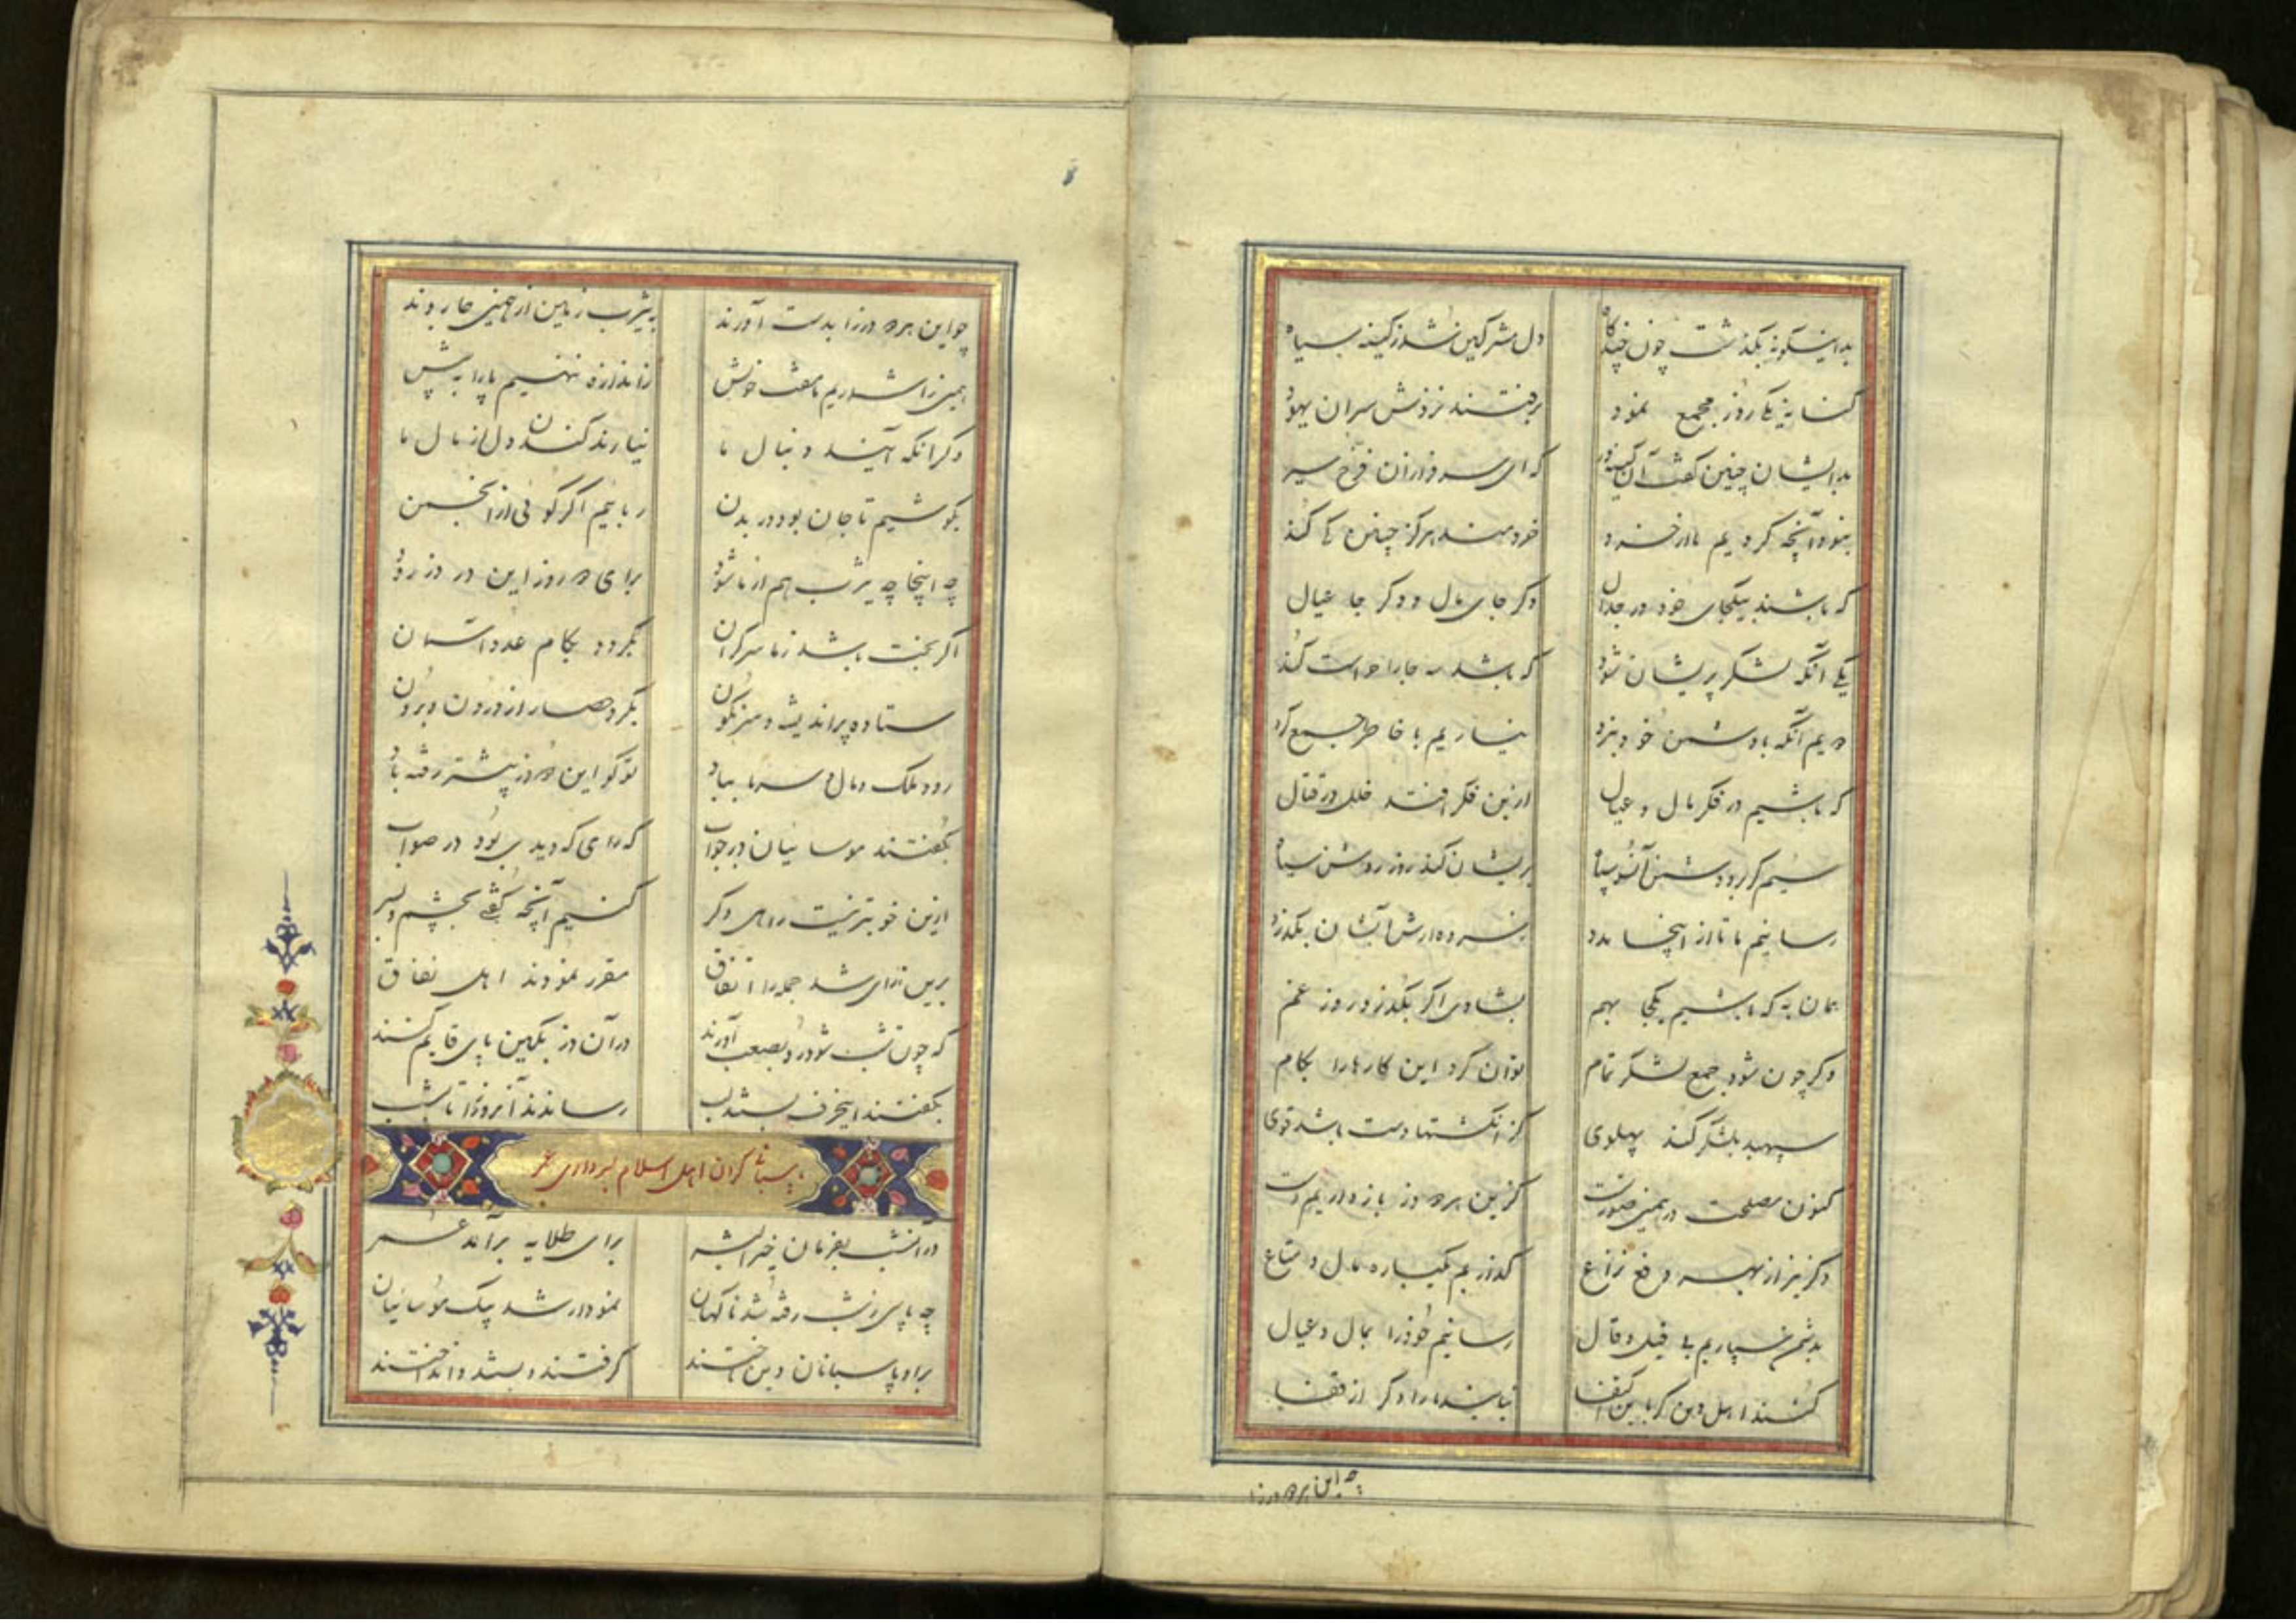 بداینگونه بگذشت چون چندگاه دل مشرکین شد ز کینه سیاه
کنایه یکروز مجمع نمود برفتند نزدش سران یهود
بدایشان چنین گفت آن که ای سرفرازان فرخ سیر
نبود آنچه کردیم ما از خرد خردمند هرگز چنین کی کند
که باشند بیکجای خود در جدال دگر جای مال و دگر جا عیال
یکی آنکه لشکر پریشان شود که باشد سه جا را
دویم آنکه با دشمن خود نبرد نیاریم با خاطر جمع کرد
که باشیم در فکر مال و عیال ازین فکر افتد خلل در قتال
سیم گر برد دشمن آنسو سپاه پریشان کند روز روشن سیاه
رسانیم ما تا از اینجا مدد
همان به که باشیم یکجا بهم بشادی اگر بگذرد روز غم
دگر چون شود جمع لشکر تمام توان کرد این کارها را بکام
سپهبد بلشکر کند پهلوی کز انگشتها دست باشد قوی
کنون مصلحت در همین صورتست کزین هر دو دز باز داریم دست
دگر نیز از بهر دفع نزاع گذاریم یکباره مال و متاع
بدشمن سپاریم بی قیل و قال رسانیم خود را بمال و عیال
کنند اهل دین گر باین اکتفا نیایند ما را دگر از قفا
چه این هر دو دز را
چو این هر دو دز را بدست آورند به یثرب زمین از همین جا روند
همین را شماریم ما مفت خویش ز اندازه ننهیم پا را به پیش
دگر آنکه آیند دنبال ما نیارند کندن دل از مال ما
بکوشیم تا جان بود در بدن
چه اینجا چه یثرب هم از ما شود برای دو روز این در دز رود
اگر بخت باشد ز ما سرگران نگردد بکام عدو آسمان
ستاده پر اندیشه و سرنگون بگرد حصار از درون و برون
رود ملک و مال و سر ما بباد تو گو این دو روز پیشتر رفته باد
بگفتند موسائیان در جواب که رای که دیدی بود در صواب
ازین خوبتر نیست راهی دگر کنیم آنچه گفتی بچشم و بسر
برین رای شد جمله را اتفاق مقرر نمودند اهل نفاق
که چون شب شود رو بصعب آورند در آن دز بکین پای قایم کنند
بگفتند اینحرف بستند لب رساندند آنروز را تا بشب
پاسبانی کردن اهل اسلام بسرداری عمر
در آنشب بفرمان خیر البشر برای طلایه برآمد عمر
چو پاسی ز شب رفته شد ناگهان نمودار شد پیک موسائیان
بر او پاسبانان دین تاختند گرفتند و بستند و انداختند